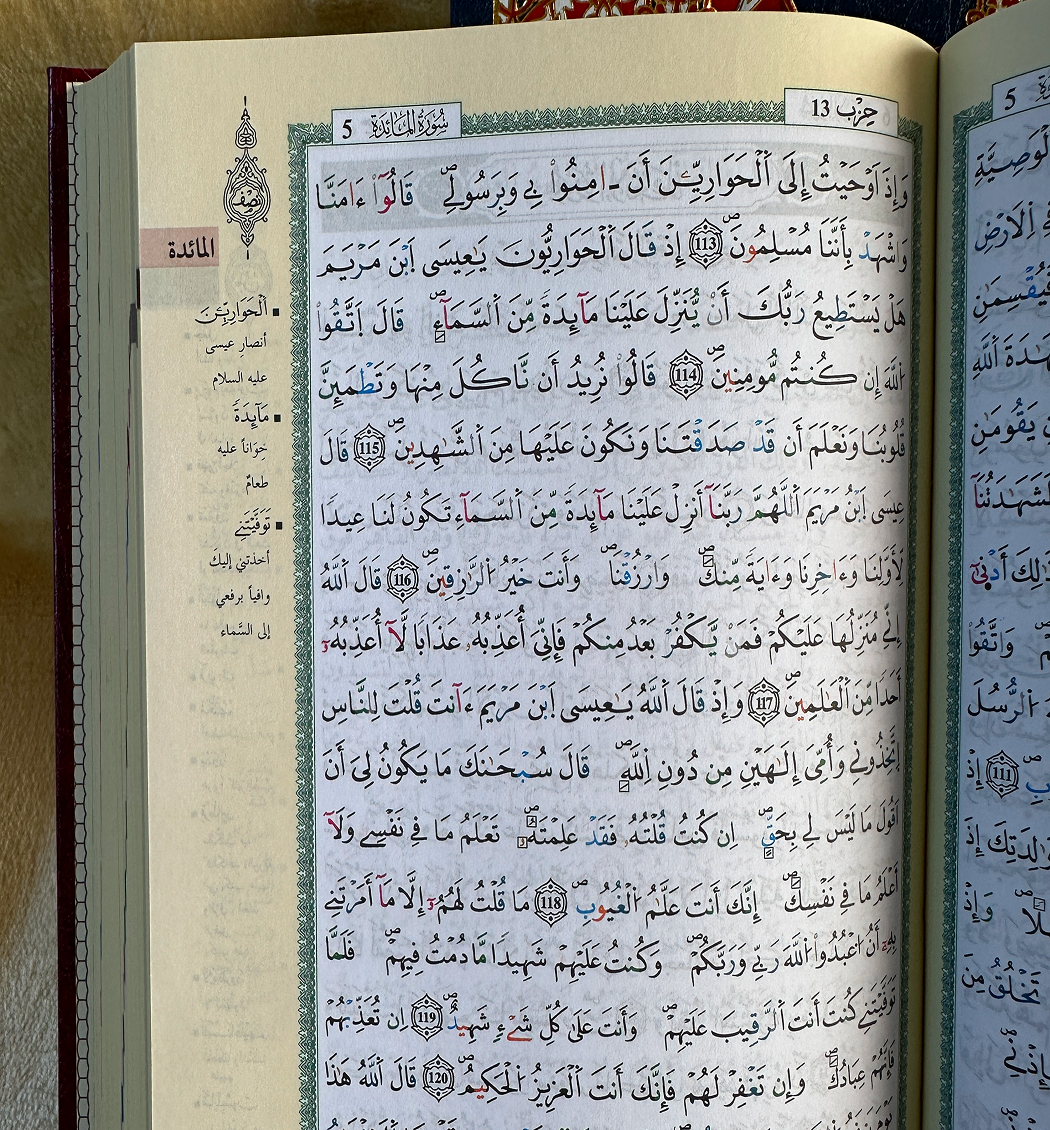 حزب 13
سورة المائدة 5
وَإِذَ اَوْحَيْتُ إِلَى اَلْحَوَارِيِّـۧنَ أَنَ ـ اٰمِنُواْ بِے وَبِرَسُولِےۖ قَالُوٓاْ ءَامَنَّا
وَاشْهَدْ بِأَنَّنَا مُسْلِمُونَۖ 113 إِذْ قَالَ اَلْحَوَارِيُّونَ يَٰعِيسَى اَبْنَ مَرْيَمَ
هَلْ يَسْتَطِيعُ رَبُّكَ أَنْ يُّنَزِّلَ عَلَيْنَا مَآئِدَةً مِّنَ اَلسَّمَآءِۖ قَالَ اَتَّقُواْ
اُللَّهَ إِن كُنتُم مُّومِنِينَۖ 114 قَالُواْ نُرِيدُ أَن نَّاكُلَ مِنْهَا وَتَطْمَئِنَّ
قُلُوبُنَا وَنَعْلَمَ أَن قَدْ صَدَقْتَنَا وَنَكُونَ عَلَيْهَا مِنَ اَلشَّٰهِدِينَۖ 115 قَالَ
عِيسَى اَبْنُ مَرْيَمَ اَللَّهُمَّ رَبَّنَآ أَنزِلْ عَلَيْنَا مَآئِدَةً مِّنَ اَلسَّمَآءِ تَكُونُ لَنَا عِيدًا
لِّأَوَّلِنَا وَءَاخِرِنَا وَءَايَةً مِّنكَۖ وَارْزُقْنَاۖ وَأَنتَ خَيْرُ اُلرَّٰزِقِينَۖ 116 قَالَ اَللَّهُ
إِنِّے مُنَزِّلُهَا عَلَيْكُمْ فَمَنْ يَّكْفُرْ بَعْدُ مِنكُمْ فَإِنِّيَ أُعَذِّبُهُۥ عَذَابًا لَّآ أُعَذِّبُهُۥٓ
أَحَدًا مِّنَ اَلْعَٰلَمِينَۖ 117 وَإِذْ قَالَ اَللَّهُ يَٰعِيسَى اَبْنَ مَرْيَمَ ءَآنتَ قُلْتَ لِلنَّاسِ
اِتَّخِذُونِے وَأُمِّيَ إِلَٰهَيْنِ مِن دُونِ اِللَّهِۖ قَالَ سُبْحَٰنَكَ مَا يَكُونُ لِيَ أَنَ
اَقُولَ مَا لَيْسَ لِے بِحَقٍّۖ اِن كُنتُ قُلْتُهُۥ فَقَدْ عَلِمْتَهُۥۖ تَعْلَمُ مَا فِے نَفْسِے وَلَآ
أَعْلَمُ مَا فِے نَفْسِكَۖ إِنَّكَ أَنتَ عَلَّٰمُ اُلْغُيُوبِۖ 118 مَا قُلْتُ لَهُمُۥٓ إِلَّا مَآ أَمَرْتَنِے
بِهِۦٓ أَنُ اُعْبُدُواْ اُللَّهَ رَبِّے وَرَبَّكُمْۖ وَكُنتُ عَلَيْهِمْ شَهِيدًا مَّا دُمْتُ فِيهِمْۖ فَلَمَّا
تَوَفَّيْتَنِے كُنتَ أَنتَ اَلرَّقِيبَ عَلَيْهِمْۖ وَأَنتَ عَلَىٰ كُلِّ شَےْءٍ شَهِيدٌۖ 119 اِن تُعَذِّبْهُمْ
فَإِنَّهُمْ عِبَادُكَۖ وَإِن تَغْفِرْ لَهُمْ فَإِنَّكَ أَنتَ اَلْعَزِيزُ اُلْحَكِيمُۖ 120 قَالَ اَللَّهُ هَٰذَا
نصف
المائدة
اَلْحَوَارِيِّـۧنَ
أنصارِ عيسى
عليه السلام
مَآئِدَةً
خِوَاناً عليه
طعامٌ
تَوَفَّيْتَنِے
أخذتني إليكَ
وافياً برفعي
إلى السَّماء
5
اَلْوَصِيَّةِ
اِلَارْضِ
فَيُقْسِمَٰنِ
شَهَٰدَةَ اَللَّهِ
يَقُومَٰنِ
لَشَهَٰدَتُنَآ
ذَٰلِكَ أَدْنَىٰٓ
وَاتَّقُواْ
اُلرُّسُلَ
111 إِذْ
وَٰلِدَتِكَ إِذَ
وَإِذْ
تَخْلُقُ مِنَ